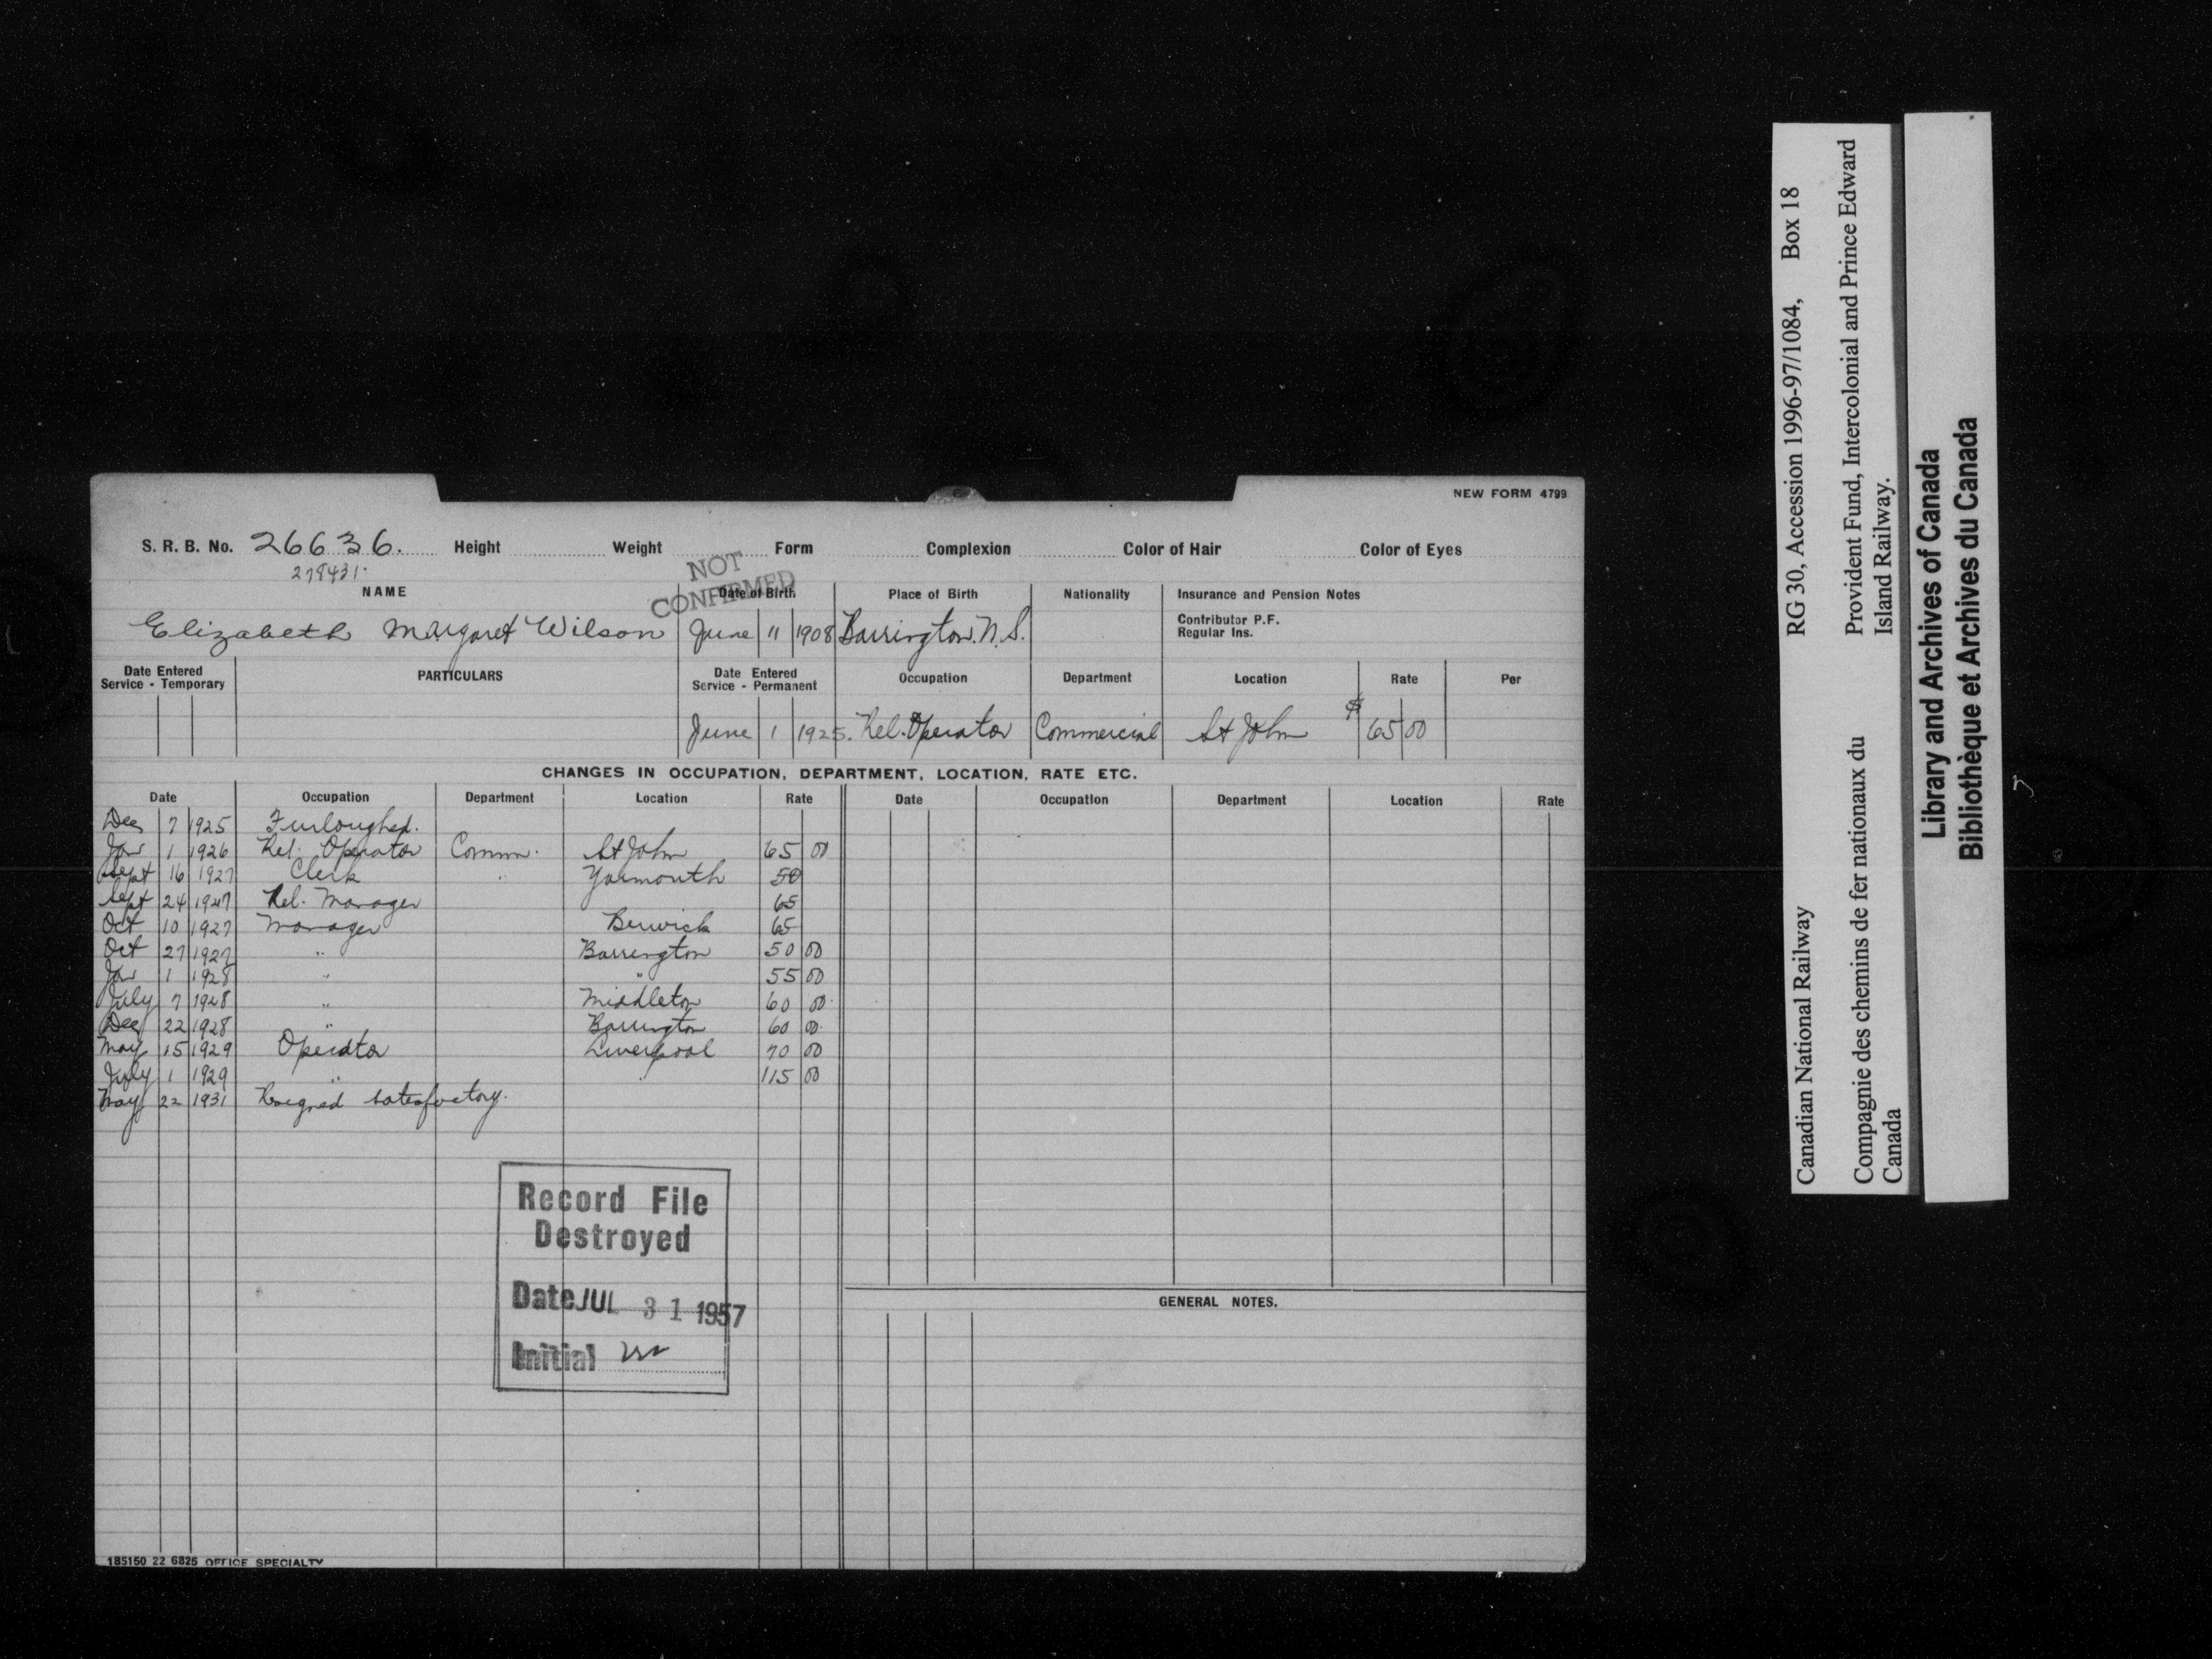 NEW FORM 4799
S. R. B. No. 26636. Height Weight Form Complexion Color of Hair Color of Eyes
279431.
NOT
CONFIRMED
NAME Date of Birth Place of Birth Nationality Insurance and Pension Notes
Contributor P.F.
Regular Ins.
Elizabeth Margaret Wilson June 11 1908 Barrington. N.S.
Date Entered Service - Temporary PARTICULARS Date Entered Service - Permanent Occupation Department Location Rate Per
June 1 1925. Rel. Operator Commercial St John $ 65 00
CHANGES IN OCCUPATION, DEPARTMENT, LOCATION, RATE ETC.
Date Occupation Department Location Rate Date Occupation Department Location Rate
Dec 7 1925 Furloughed.
Jan 1 1926 Rel. Operator Comm. St John 65 00
Sept 16 1927 Clerk " Yarmouth 50
Sept 24 1927 Rel. Manager 65
Oct 10 1927 Manager Berwick 65
Oct 27 1927 " Barrington 50 00
Jan 1 1928 " " 55 00
July 7 1928 " Middleton 60 00
Dec 22 1928 " Barrington 60 00
May 15 1929 Operator Liverpool 70 00
July 1 1929 " " 115 00
May 22 1931 Resigned satisfactory.
Record File
Destroyed
Date JUL 31 1957
Initial
GENERAL NOTES.
185150 22 6825 OFFICE SPECIALTY
Canadian National Railway RG 30, Accession 1996-97/1084, Box 18
Compagnie des chemins de fer nationaux du Provident Fund, Intercolonial and Prince Edward
Canada Island Railway.
Library and Archives of Canada
Bibliothèque et Archives du Canada